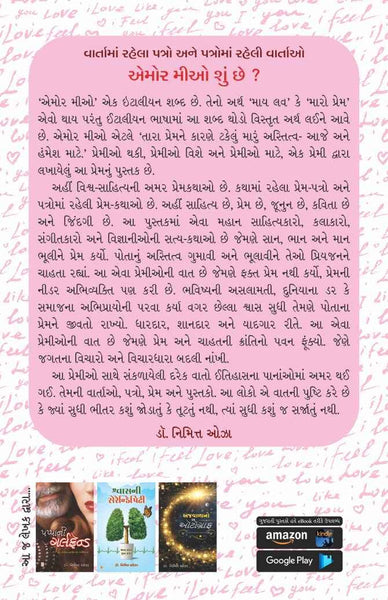 વાર્તામાં રહેલા પત્રો અને પત્રોમાં રહેલી વાર્તાઓ
એમોર મીઓ શું છે ?
‘એમોર મીઓ’ એક ઇટાલીયન શબ્દ છે. તેનો અર્થ ‘માય લવ’ કે ‘મારો પ્રેમ’
એવો થાય પરંતુ ઈટાલીયન ભાષામાં આ શબ્દ થોડો વિસ્તૃત અર્થ લઈને આવે
છે. એમોર મીઓ એટલે ‘તારા પ્રેમને કારણે ટકેલું મારું અસ્તિત્વ- આજે અને
હંમેશ માટે.’ પ્રેમીઓ થકી, પ્રેમીઓ વિશે અને પ્રેમીઓ માટે, એક પ્રેમી દ્વારા
લખાયેલું આ પ્રેમનું પુસ્તક છે.
અહીં વિશ્વ-સાહિત્યની અમર પ્રેમકથાઓ છે. કથામાં રહેલા પ્રેમ-પત્રો અને
પત્રોમાં રહેલી પ્રેમ-કથાઓ છે. અહીં સાહિત્ય છે, પ્રેમ છે, જૂનુન છે, કવિતા છે
અને જિંદગી છે. આ પુસ્તકમાં એવા મહાન સાહિત્યકારો, કલાકારો,
સંગીતકારો અને વિજ્ઞાનીઓની સત્ય-કથાઓ છે જેમણે સાન, ભાન અને માન
ભૂલીને પ્રેમ કર્યો. પોતાનું અસ્તિત્વ ગુમાવી અને ભૂલાવીને તેઓ પ્રિયજનને
ચાહતા રહ્યાં. આ એવા પ્રેમીઓની વાત છે જેમણે ફક્ત પ્રેમ નથી કર્યો, પ્રેમની
નીડર અભિવ્યક્તિ પણ કરી છે. ભવિષ્યની અસલામતી, દુનિયાના ડર કે
સમાજના અભિપ્રાયોની પરવા કર્યા વગર છેલ્લા શ્વાસ સુધી તેમણે પોતાના
પ્રેમને જીવતો રાખ્યો. ધારદાર, શાનદાર અને યાદગાર રીતે. આ એવા
પ્રેમીઓની વાત છે જેમણે પ્રેમ અને ચાહતની ક્રાંતિનો પવન ફૂંક્યો. જેણે
જગતના વિચારો અને વિચારધારા બદલી નાંખી.
આ પ્રેમીઓ સાથે સંકળાયેલી દરેક વાતો ઈતિહાસના પાનાંઓમાં અમર થઈ
ગઈ. તેમની વાર્તાઓ, પત્રો, પ્રેમ અને પુસ્તકો. આ લોકો એ વાતની પુષ્ટિ કરે છે
કે જ્યાં સુધી ભીતર કશું જોડાતું કે તૂટતું નથી, ત્યાં સુધી કશું જ સર્જાતું નથી.
ડૉ. નિમિત્ત ઓઝા
આ જ લેખક દ્વારા...
પપ્પાની
ગર્લફ્રેન્ડ
ડૉ. નિમિત્ત ઓઝા
શ્વાસની
સેરેન્ડિપિટી
ડૉ. નિમિત્ત ઓઝા
અજવાળાનો
ઓટોગ્રાફ
ડૉ. નિમિત્ત ઓઝા
ગુજરાતી પુસ્તકો હવે eBook તરીકે ઉપલબ્ધ
amazon
kindle
Google Play